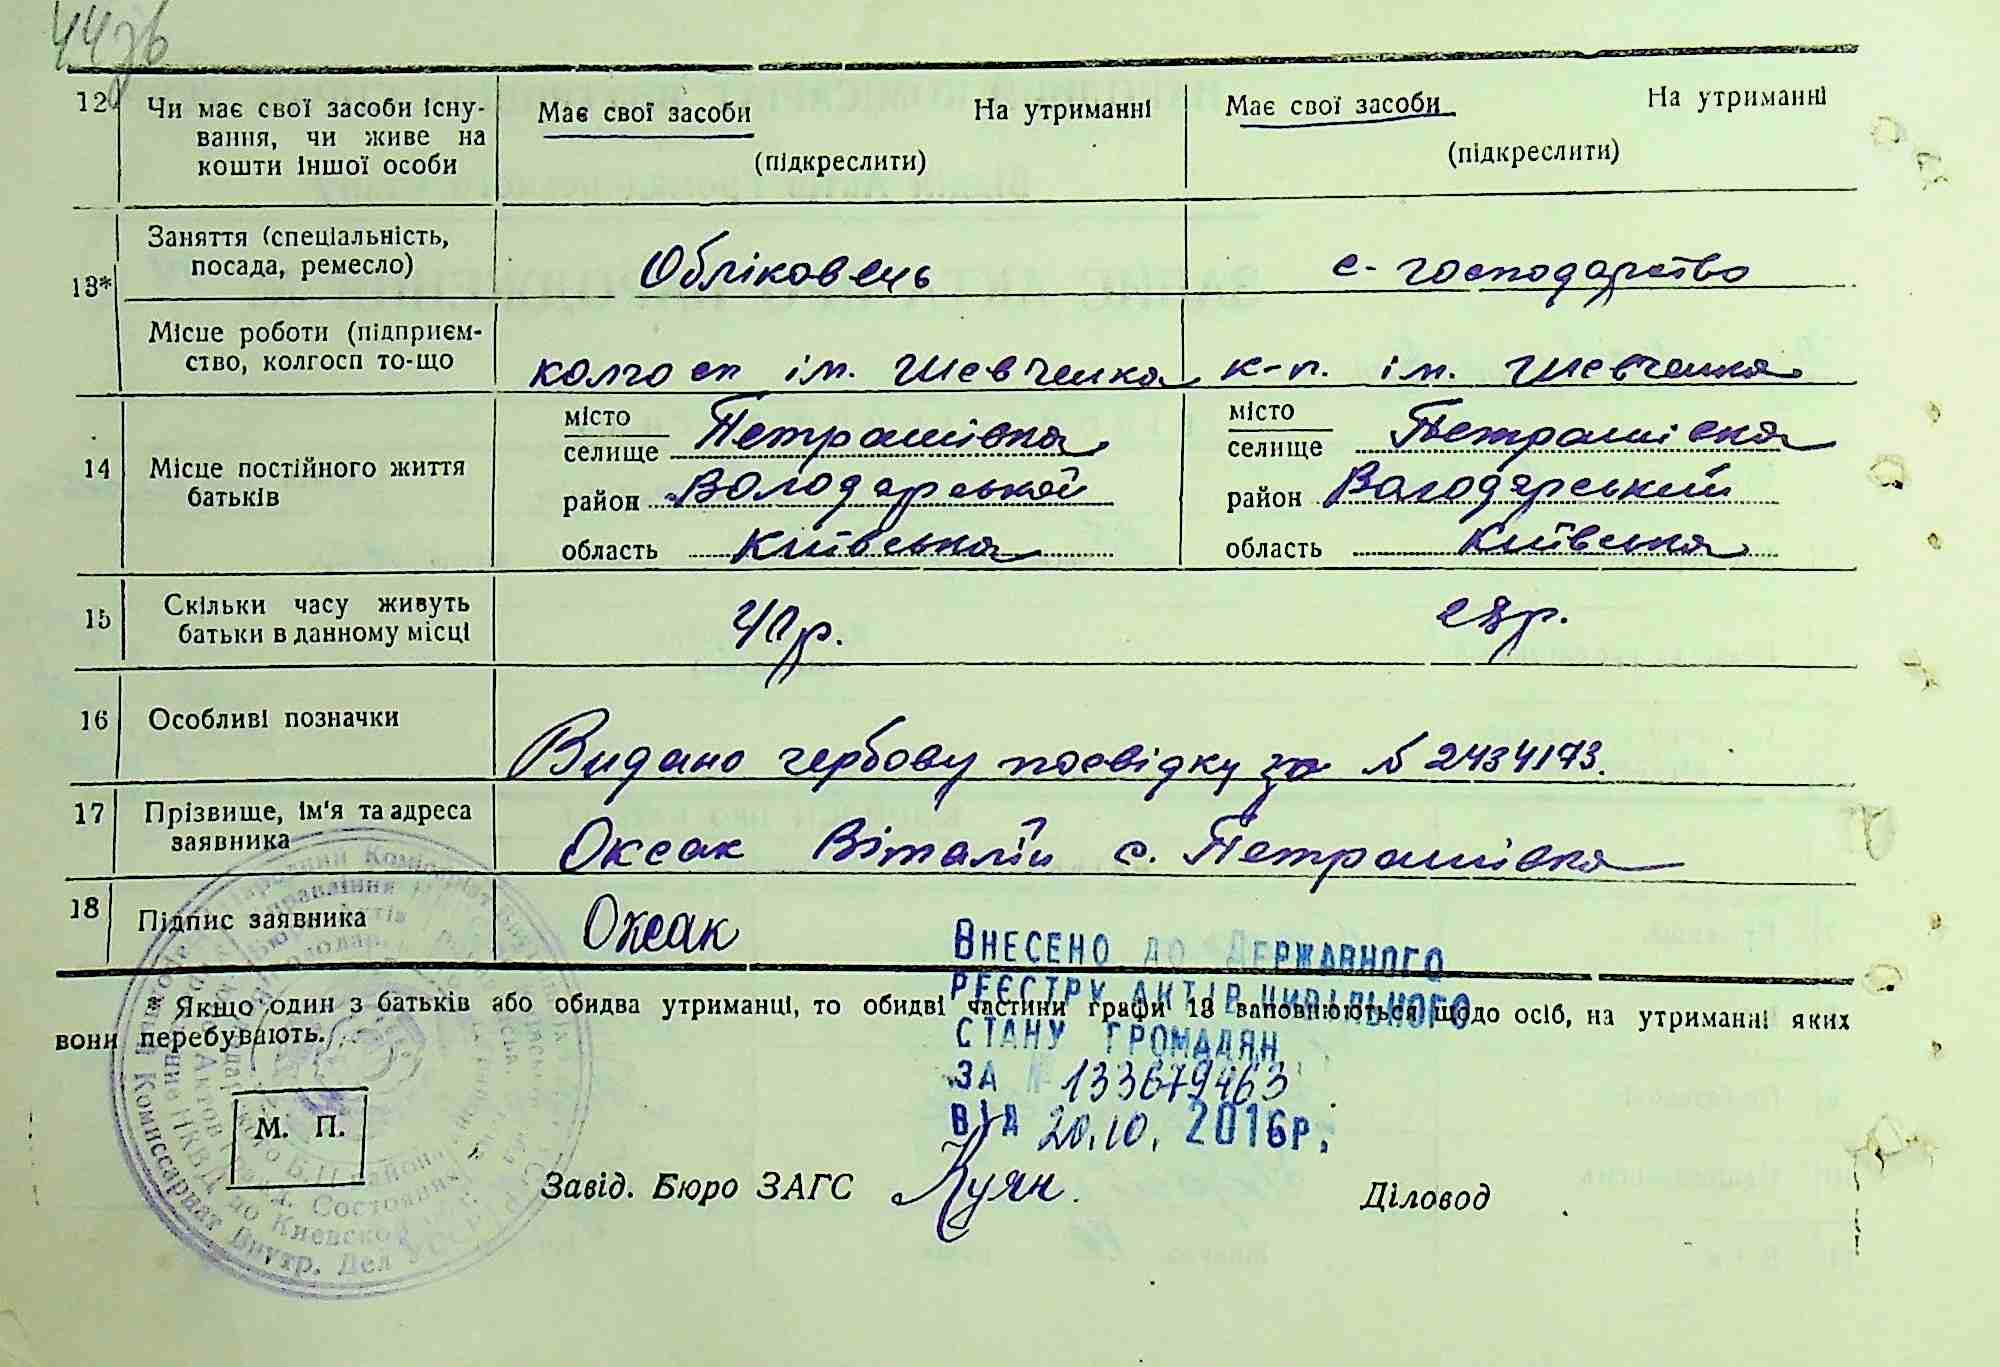 44зв
12 Чи має свої засоби існу-
вання, чи живе на
кошти іншої особи
Має свої засоби На утриманні
(підкреслити)
Має свої засоби На утриманні
(підкреслити)
13* Заняття (спеціальність,
посада, ремесло)
Обліковець
с-господарство
Місце роботи (підприєм-
ство, колгосп то-що
колгосп ім. Шевченка
к-п. ім. Шевченка
14 Місце постійного життя
батьків
місто
селище Петрашівка
район Володарський
область Київська
місто
селище Петрашівка
район Володарський
область Київська
15 Скільки часу живуть
батьки в данному місці
16 Особливі позначки
Видано гербову посвідку за № 2434173.
17 Прізвище, ім'я та адреса
заявника
Оксак Віталій с. Петрашівка
18 Підпис заявника
Оксак
ВНЕСЕНО ДО ДЕРЖАВНОГО
РЕЄСТРУ АКТІВ ЦИВІЛЬНОГО
СТАНУ ГРОМАДЯН
ЗА № 133679463
ВІД 20.10. 2016р.
* Якщо один з батьків або обидва утриманці, то обидві частини графи 13 заповнюються щодо осіб, на утриманні яких
вони перебувають.
М. П.
Завід. Бюро ЗАГС Куян.
Діловод